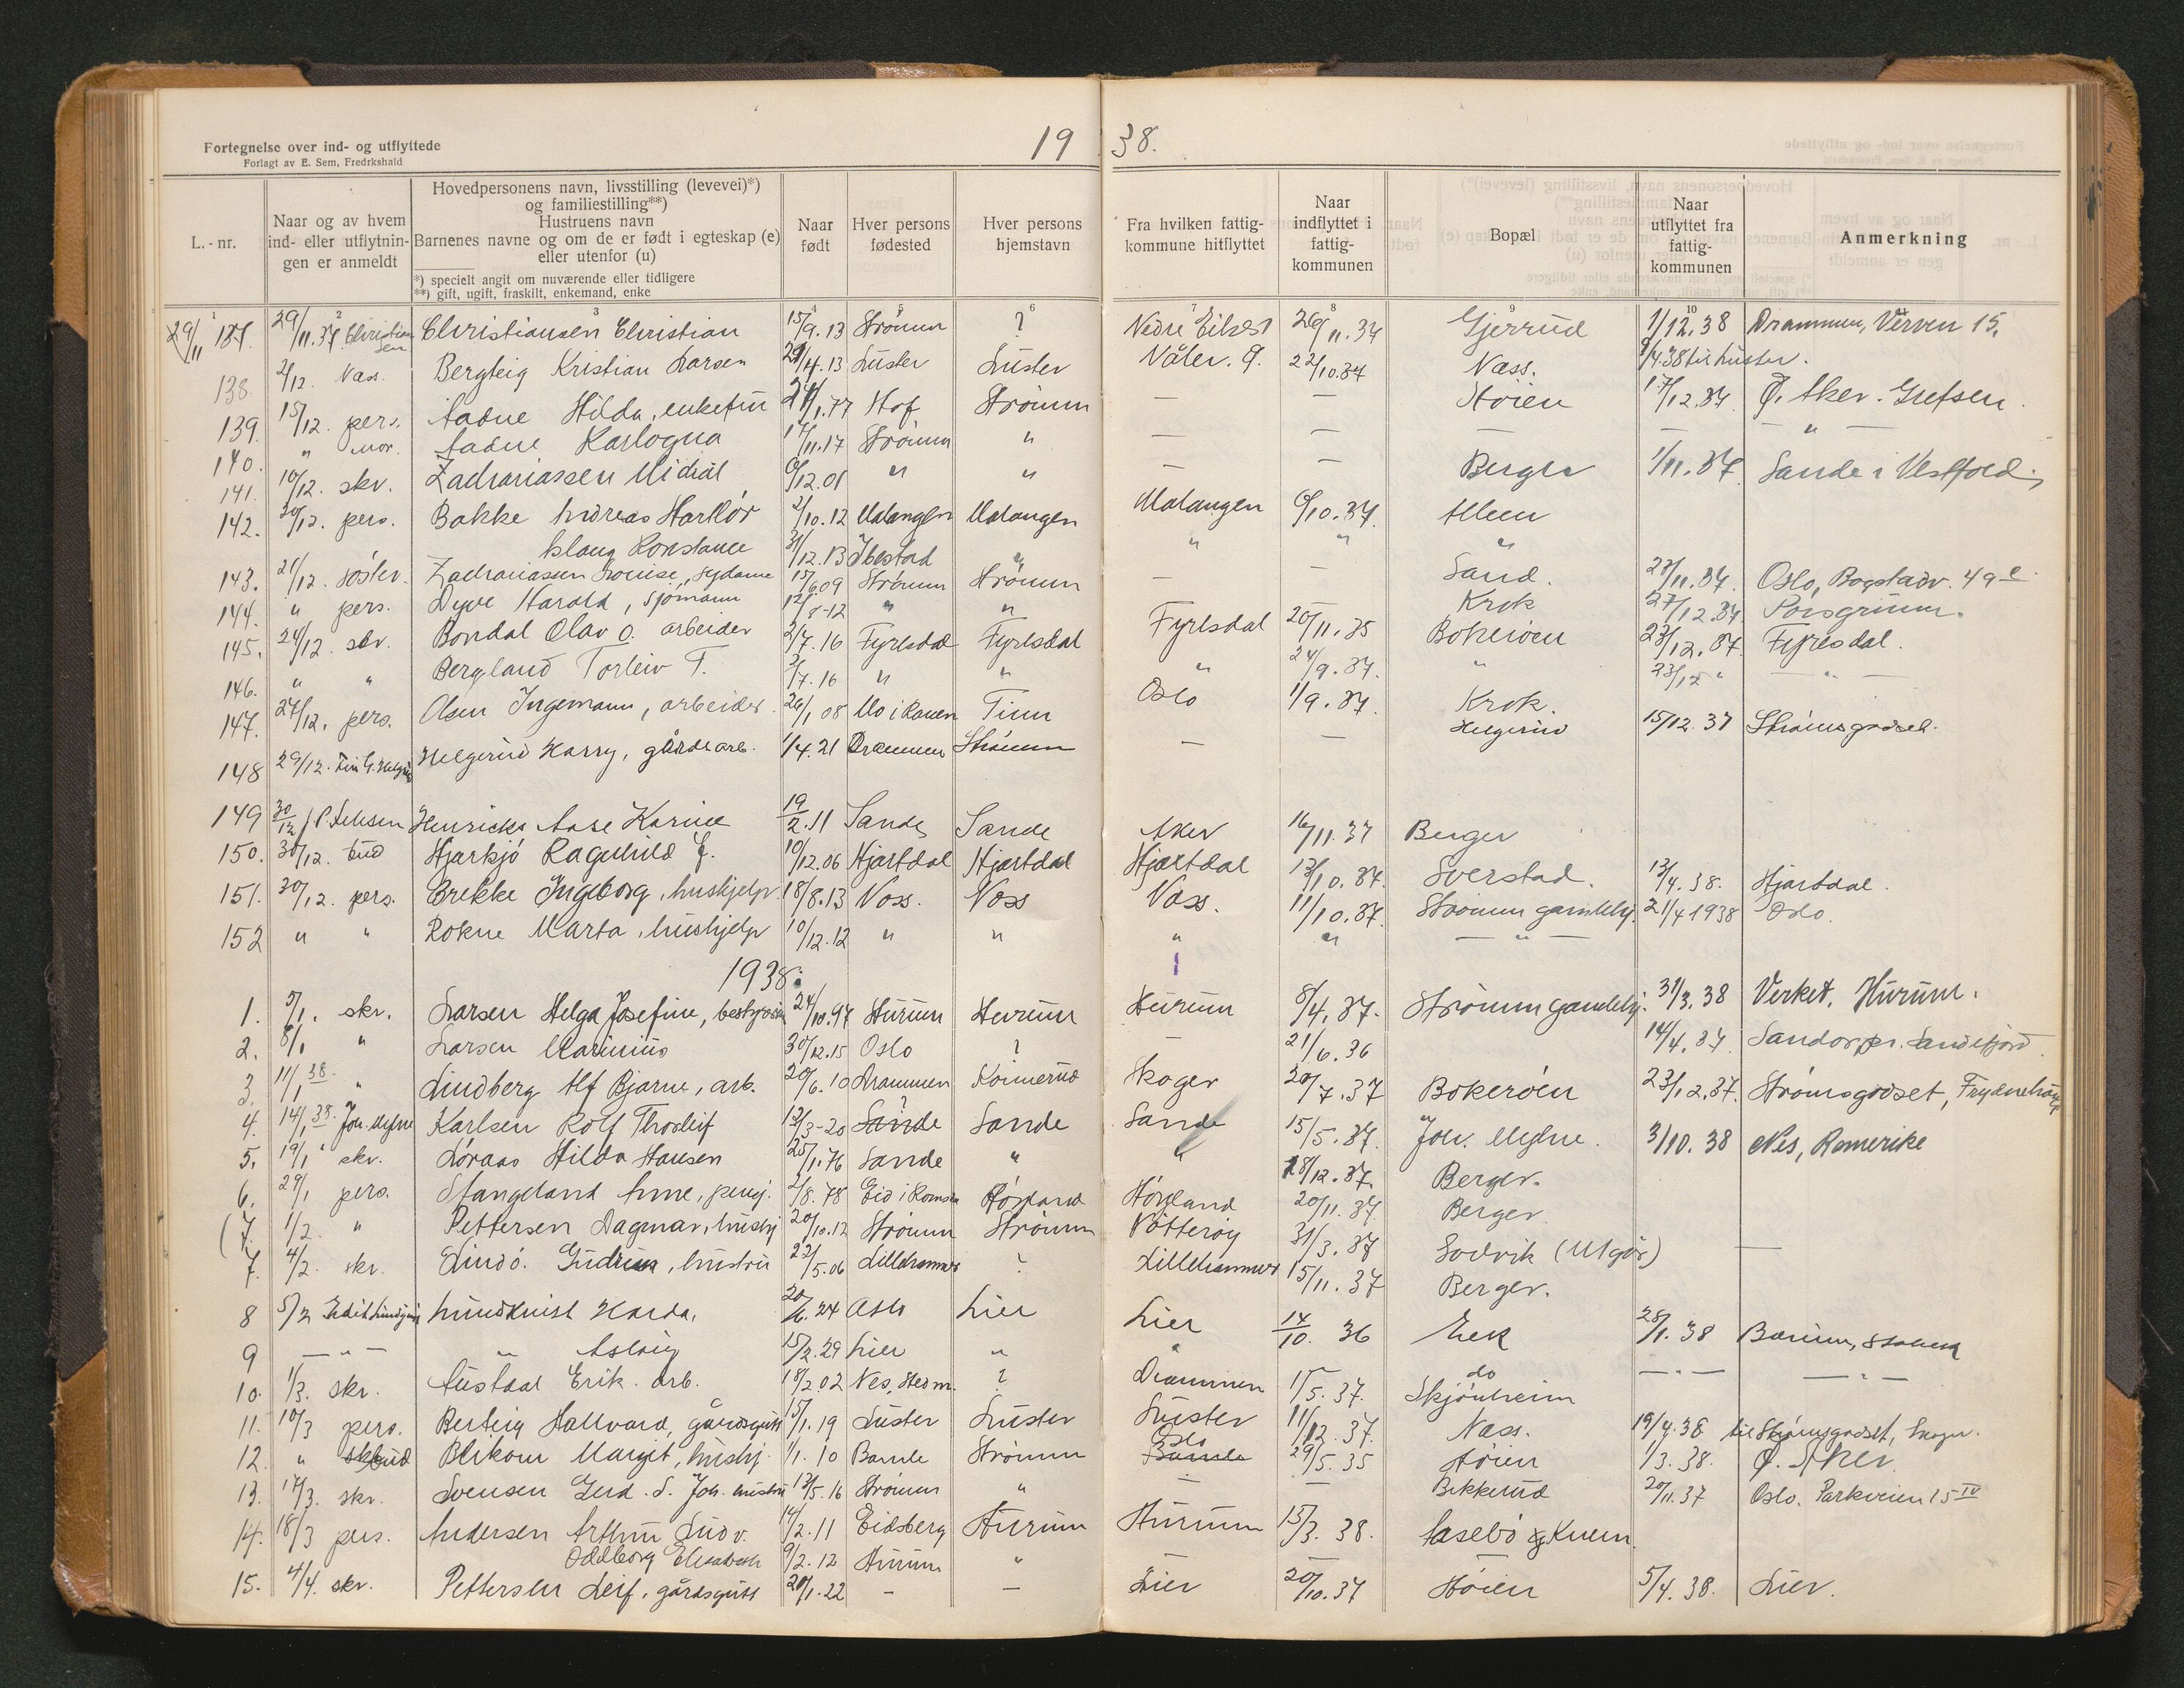 Fortegnelse over ind- og utflyttede
Forlagt av E. Sem, Fredrkshald
19 38.
L.-nr.
Naar og av hvem ind- eller utflytningen er anmeldt
Hovedpersonens navn, livsstilling (levevei)*) og familiestilling**)
Hustruens navn
Barnenes navne og om de er født i egteskap (e) eller utenfor (u)
*) specielt angit om nuværende eller tidligere
**) gift, ugift, fraskilt, enkemand, enke
Naar født
Hver persons fødested
Hver persons hjemstavn
Fra hvilken fattigkommune hitflyttet
Naar indflyttet i fattigkommunen
Bopæl
Naar utflyttet fra fattigkommunen
Anmerkning
1 2 3 4 5 6 7 8 9 10
29/11 137. 29/11.37 Christiansen Christiansen Christian 15/9.13 Strömm ? Nedre Eiker 26/11.37 Gjerrud 1/12.38 Drammen, Verven 15.
138. 2/12. Nass. Bergteig Kristian Larsen 29/4.13 Luster Luster Våler. Ø. 22/10.37 Nass. 9/4.38 til Luster.
139. 15/12. pers. Aadne Hilda, enkefru 24/1.77 Hof Strömm — — Höien 17/12.37 Ø. Aker. Grefsen.
140. " mor. Aadne Karlogna 17/11.17 Strömm " — — — — — " —
141. 10/12. skr. Zachariassen Michal 6/12.01 " " — — Berger 1/11.37 Sande i Vestfold.
142. 20/12. pers. Bakke Andreas Harklör 2/10.12 Malangen Malangen Malangen 6/10.37. Alleen
Aslaug Konstance 31/12.13 Ibestad " " " "
143. 21/12. söster. Zachariassen Louise, sydame 15/6.09 Strömm Strömm — — Sand. 27/11.37. Oslo, Bogstadv. 49 e
144. " pers. Dyve Harald, sjömann 12/8-12 " " — — Krok 27/12.37 Porsgrunn.
145. 24/12. skr. Bondal Olav O. arbeider 2/7.16 Fyrlsdal Fyrlsdal Fyrlsdal 20/11.35 Bokeröen 23/12.37. Fyresdal.
146. " " Bergland Torleiv T. 2/7.16 " " " 24/9.37. " 23/12 " — " —
147. 27/12. pers. Olsen Ingemann, arbeider. 26/1 08 Mo i Ranen Tinn Oslo 1/9.37. Krok.
148 29/12. Helgerud Harry, gårdsarb. 1/4.21 Drammen Strömm — — Helgerud 15/12.37 Strömsgodset.
149 30/12 Henricks Aase Karine 19/2.11 Sande Sande Aker 16/11.37 Berger
150. 30/12. bud Hjarkjö Ragnhild G. 10/12.06 Hjartdal Hjartdal Hjartdal 13/10.37. Sverstad. 13/4.38. Hjartdal.
151. 30/12. pers. Brekke Ingeborg, hushjelp 18/8.13 Voss. Voss Voss. 11/10.37. Strömm gamlehj. 21/4 1938 Oslo.
152 " " Rokne Marta, hushjelp 10/12.12 " " " " — " —
1938.
1. 5/1. skr. Larsen Helga Josefine, bestyrerin 24/10.97 Hurum Hurum Hurum 8/4.37. Strömm gamlehj. 31/3.38 Verket, Hurum.
2. 8/1 " Larsen Marinius 30/12.15 Oslo ? — 21/6.36 14/4.37. Sandar pr. Sandefjord
3. 11/1 38. " Lindberg Alf Bjarne, arb. 20/6.10 Drammen Konnerud Skoger 20/7.37 Bokeröen 23/12.37. Strömsgodset, Frydenhaug
4. 14/1 38. Joh. Myhre Karlsen Rolf Thorleif 12/3-20 Sande Sande Sande 15/5.37. Joh. Myhre. 3/10.38 Nes, Romerike
5. 19/1 " skr. Löraas Hilda Hansen 25/1.76 Sande " " 18/12.37. Berger.
6. 29/1 pers. Stangeland Anne, pensj. 2/8.78 Eid i Romsd. Högland Högland 20/11.37. Berger.
(7. 1/2. " Pettersen Dagmar, hushj 20/10.12 Strömm Strömm Nötteröy 31/3.37 Sodvik (Utgår) —
7. 4/2. skr. Lindö. Gudrun, hustru 22/5.06 Lillehammer ? Lillehammer 15/11.37 Berger.
8 5/2 Lundkvist Harda. 20/6.24 Oslo Lier Lier 14/10. 36 Eek 28/1.38 Bærum, Stabekk
9 — " — " Aslaug 15/2.29 Lier " " do — " — — " —
10. 1/3. skr. Austdal Erik. arb. 18/2.02 Nes, Hedm. ? Drammen 1/5.37. Skjönheim
11. 10/3 pers. Berteig Hallvard, gårdsgutt 15/1.19 Luster Luster Luster 11/12.37. Nass. 19/4.38 til Strömsgodset, Skoger.
12. " bud Blikom Margit, hushj. 1/1.10 Bamle Strömm Oslo Bamle 29/5.35 Höien 1/3.38. Ø. Aker
13. 17/3. skr. Svensen Gerd. S. Joh. hustru 13/5.16 Strömm " — — Bekkerud 20/11.37 Oslo. Parkveien 15 IV
14. 18/3 pers. Andersen Arthur Ludv. 14/2.11 Eidsberg Hurum Hurum 15/3. 38. Aasebö og Knem
Oddborg Elisabeth 9/2.12 Hurum "
15. 4/4. skr. Pettersen Leif, gårdsgutt 20/1.22 — — Lier 20/10.37 Höien 5/4.38. Lier.